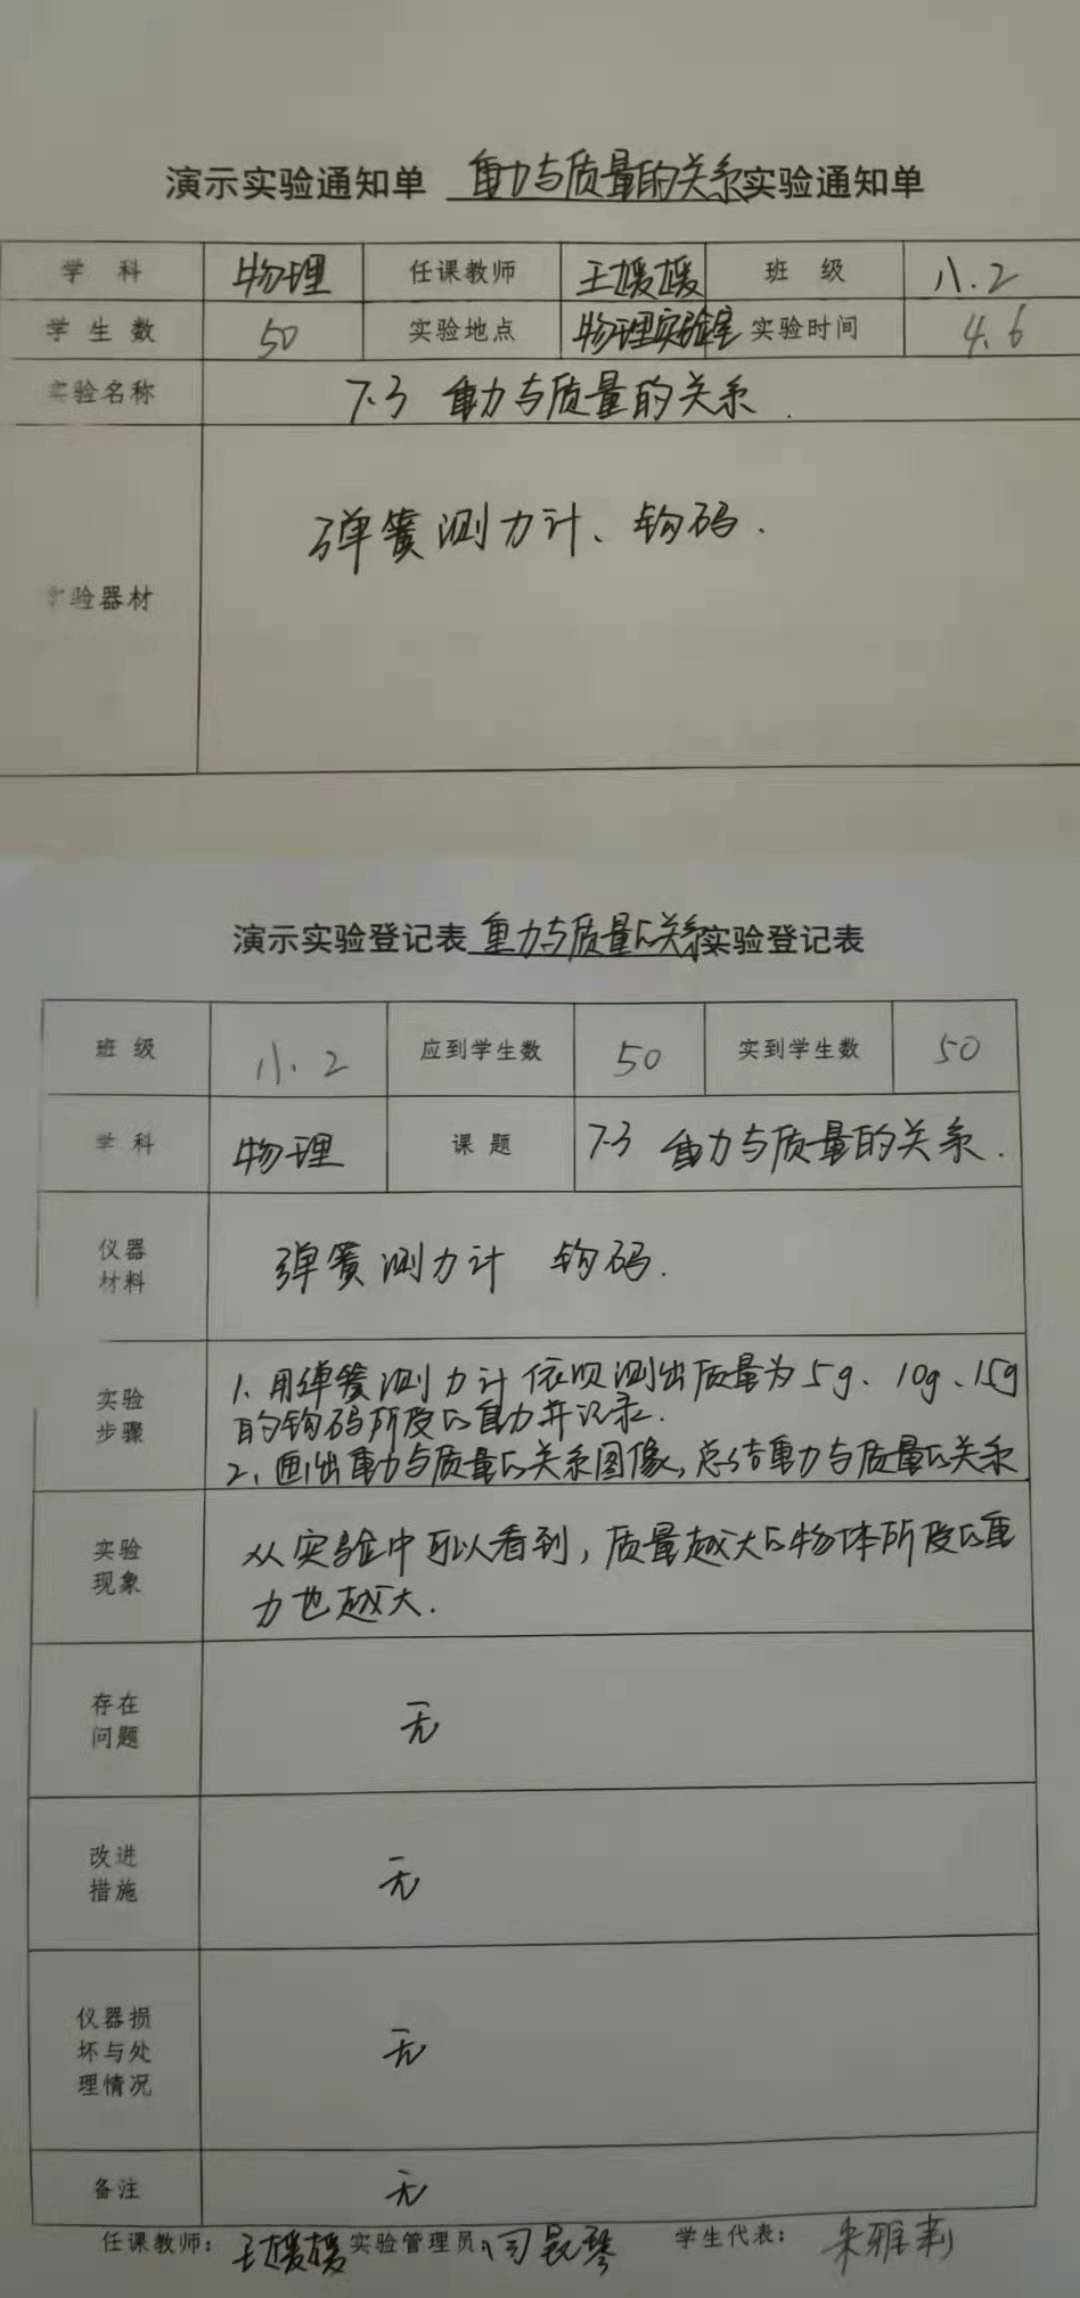 演示实验通知单 重力与质量的关系实验通知单
学 科 物理 任课教师 王媛媛 班 级 八.2
学 生 数 50 实验地点 物理实验室 实验时间 4.6
实验名称 7.3 重力与质量的关系.
弹簧测力计、钩码.
实验器材
演示实验登记表 重力与质量的关系实验登记表
班 级 八.2 应到学生数 50 实到学生数 50
学 科 物理 课 题 7.3 重力与质量的关系.
仪器
材料
弹簧测力计 钩码.
实验
步骤
1. 用弹簧测力计依次测出质量为5g、10g、15g
的钩码所受的重力并记录.
2. 画出重力与质量的关系图像,总结重力与质量的关系
实验
现象
从实验中可以看到,质量越大的物体所受的重
力也越大.
存在
问题
无
改进
措施
无
仪器损
坏与处
理情况
无
备注 无
任课教师: 王媛媛 实验管理员: 学生代表: 朱雅莉